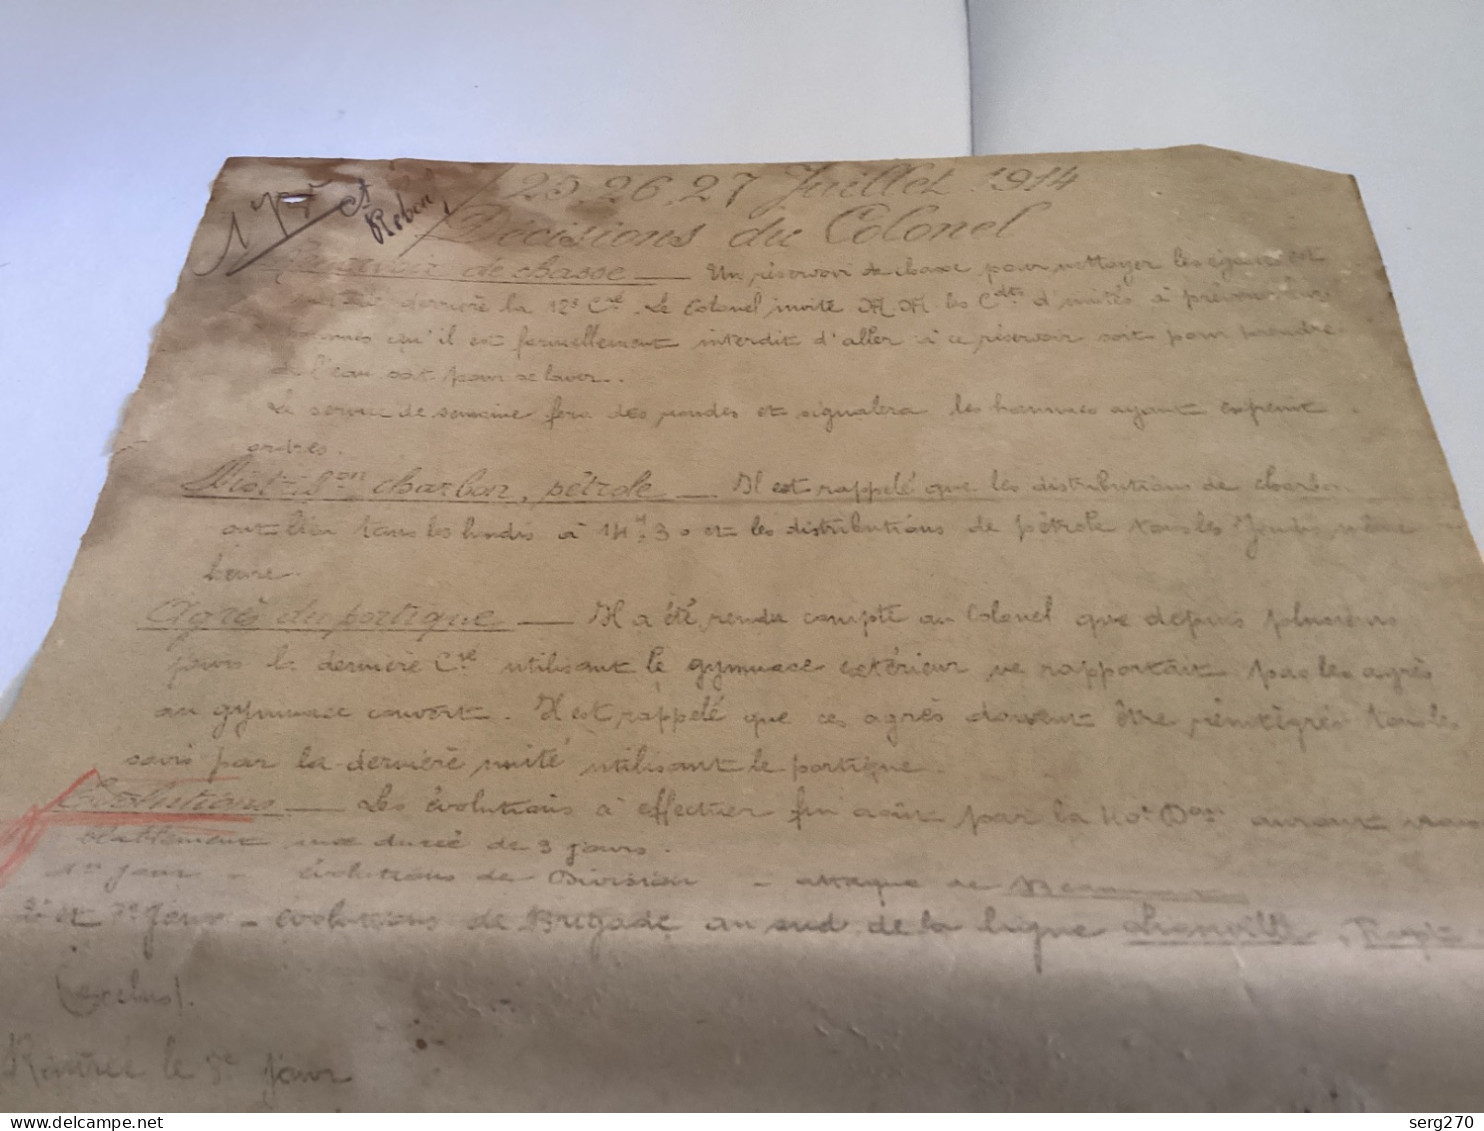 25, 26, 27 Juillet 1914
Décisions du Colonel
Réservoir de chasse — Un réservoir de chasse pour nettoyer les égouts est
derrière la 12e Cie. Le Colonel invite M M. les Cdts d'unités à prévenir leurs
hommes qu'il est formellement interdit d'aller à ce réservoir soit pour prendre
de l'eau soit pour se laver.
Le service de semaine fera des rondes et signalera les hommes ayant enfreint
ordres.
Distr-Bon charbon, pétrole — Il est rappelé que les distributions de charbon
ont lieu tous les lundis à 14h,30 et les distributions de pétrole tous les Jeudis même
heure.
Agrès du portique — Il a été rendu compte au Colonel que depuis plusieurs
jours la dernière Cie utilisant le gymnase extérieur ne rapportait pas les agrès
au gymnase couvert. Il est rappelé que ces agrès doivent être réintégrés tous les
soirs par la dernière unité utilisant le portique.
Evolutions — Les évolutions à effectuer fin août par la 40e Don auront vrai
blablement une durée de 3 jours.
1er jour - évolutions de Division - attaque de
2e et 3e jour - évolutions de Brigade au sud de la ligne
(exclus).
Rentrée le 3e jour
serg270